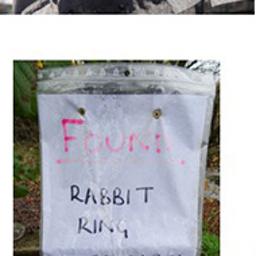 FOUND
RABBIT
RING